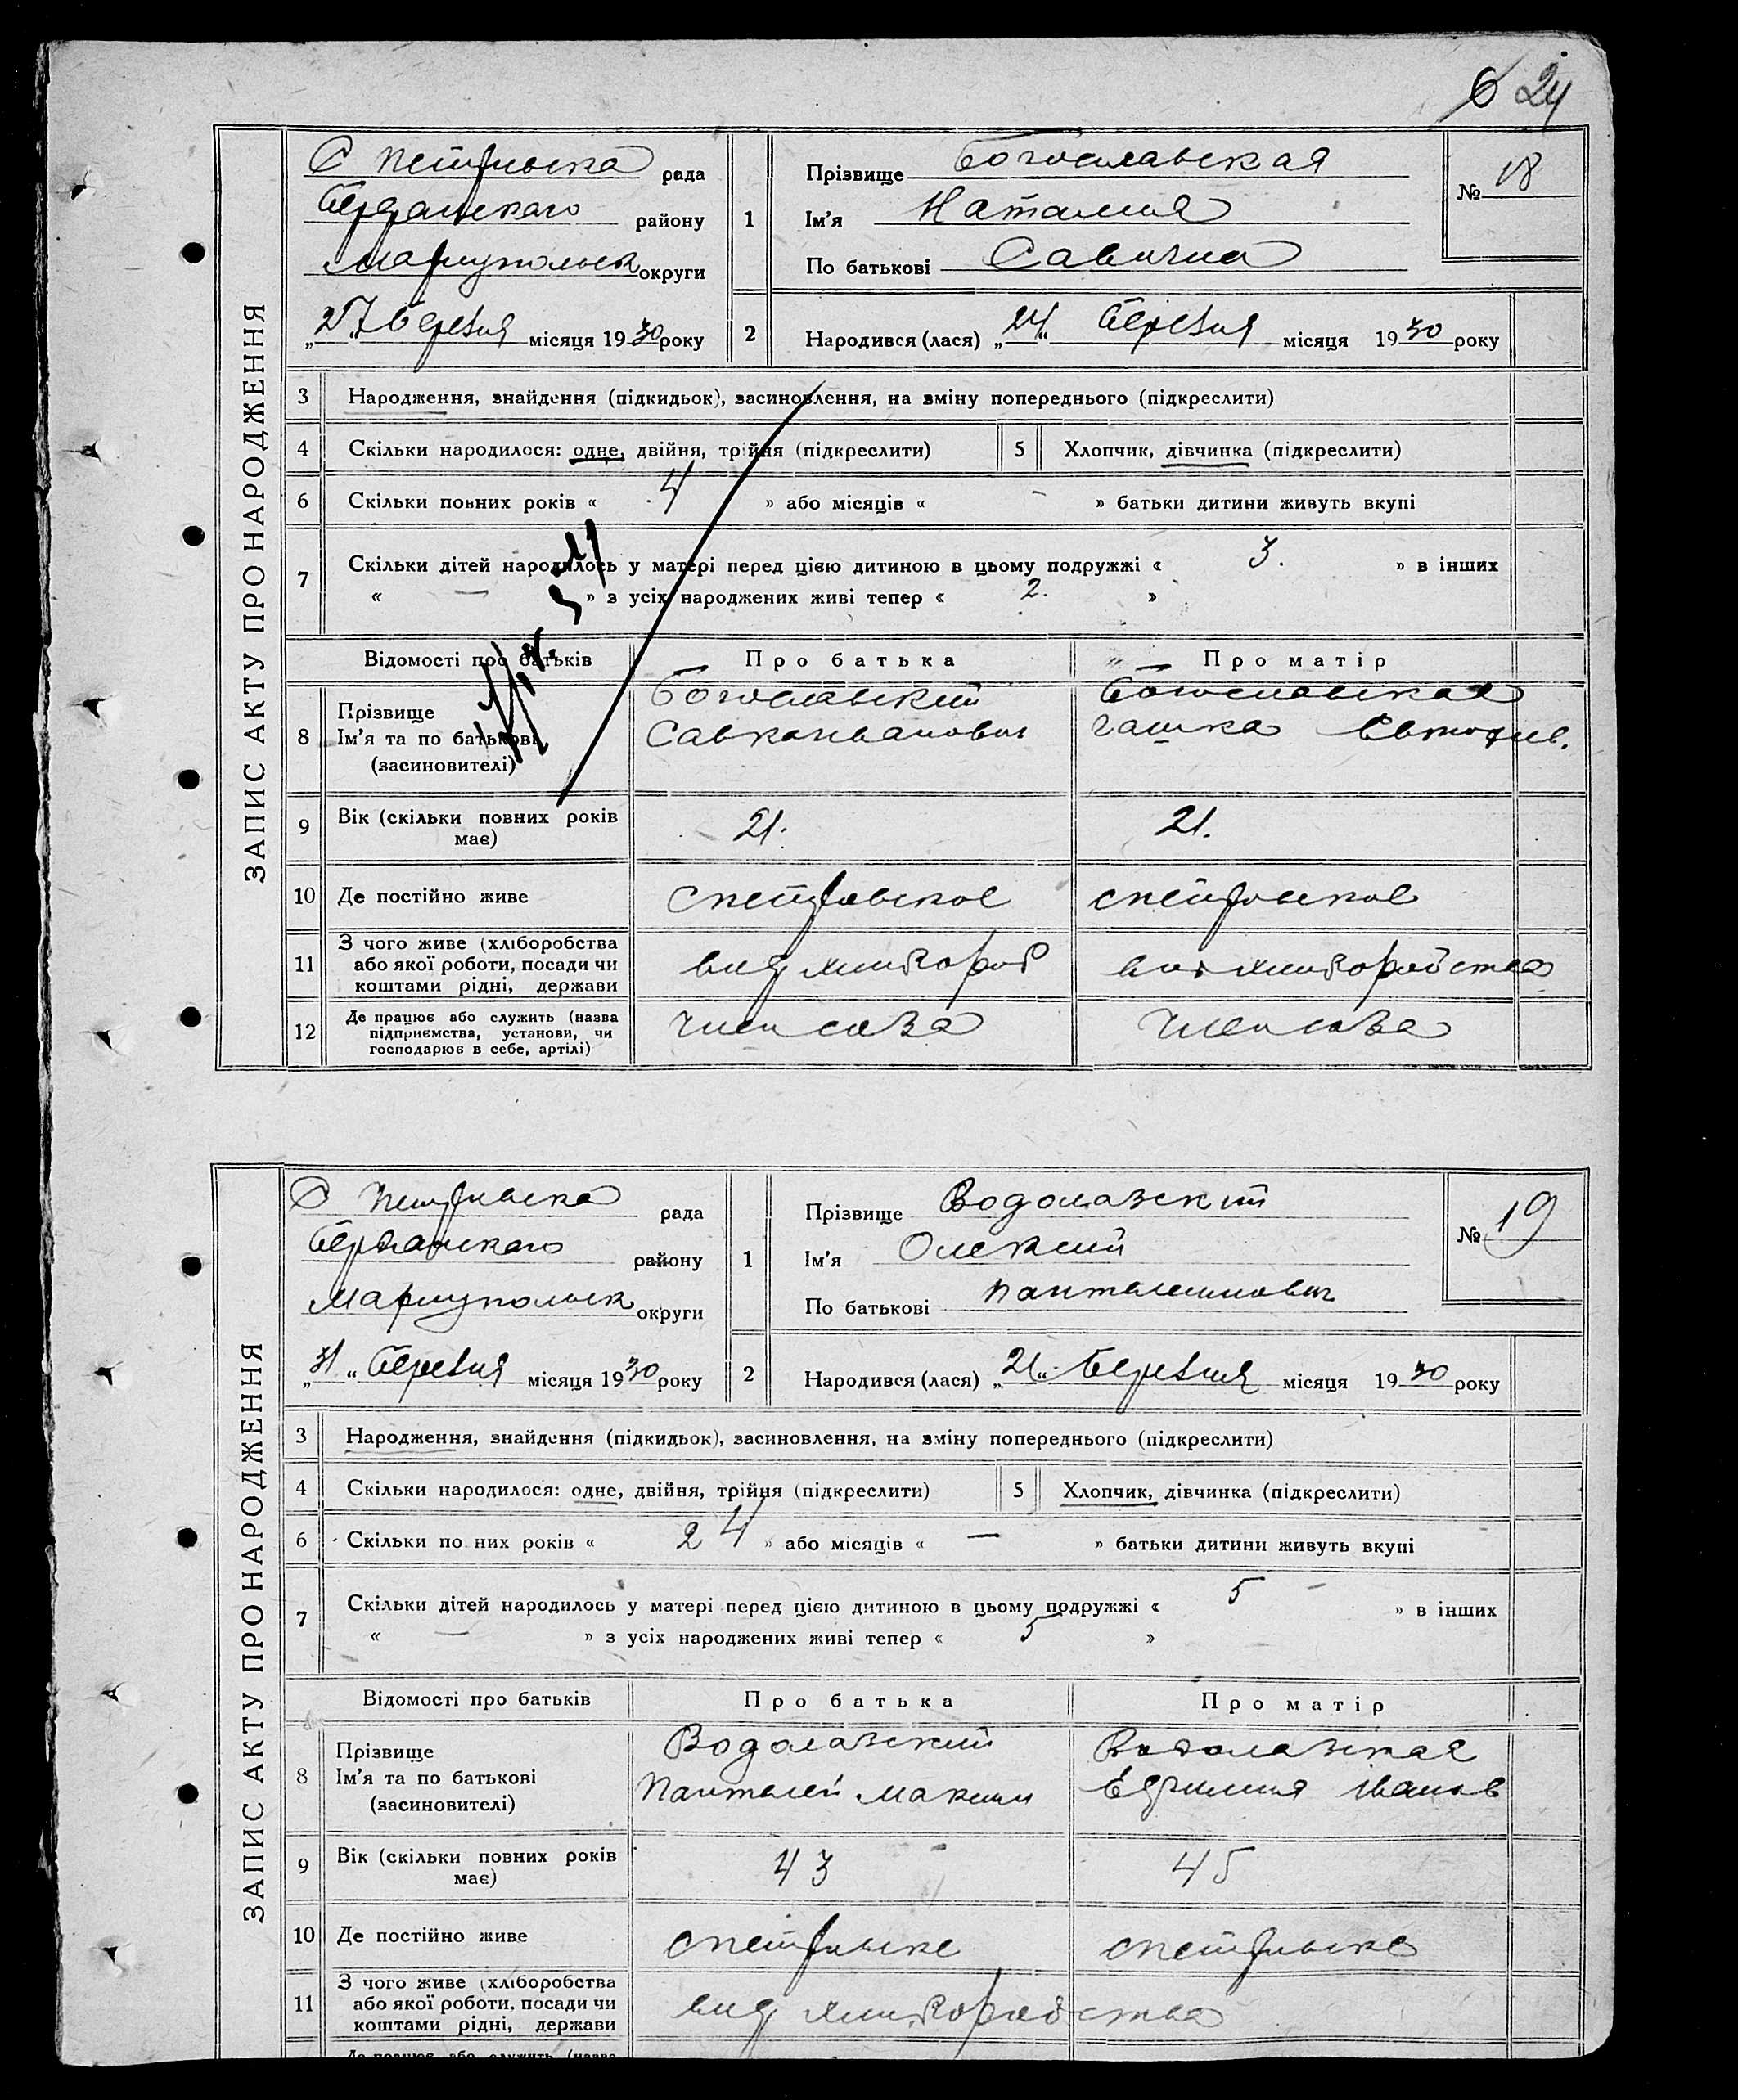 6 24
ЗАПИС АКТУ ПРО НАРОДЖЕННЯ
С Петрівска рада
Бердянскаго району
Мариупольск округи
„27“ березня місяця 1930 року
1
Прізвище Богославская
Ім'я Наталия
По батькові Савична
№ 18
2
Народився (лася) „24“ березня місяця 1930 року
3 Народження, знайдення (підкидьок), засиновлення, на зміну попереднього (підкреслити)
4 Скільки народилося: одне, двійня, трійня (підкреслити)
5 Хлопчик, дівчинка (підкреслити)
6 Скільки повних років « 4 » або місяців « - » батьки дитини живуть вкупі
7 Скільки дітей народилось у матері перед цією дитиною в цьому подружжі « 3. » в інших
« — » з усіх народжених живі тепер « 2. »
Відомості про батьків Про батька Про матір
8 Прізвище
Ім'я та по батькові
(засиновителі)
Богославский
Савка Іванович
Богославская
Гашка
9 Вік (скільки повних років
має)
21.
21.
10 Де постійно живе
Спетровское
Спетровское
11 З чого живе (хліборобства
або якої роботи, посади чи
коштами рідні, держави
вид хлибороб
вид хлиборобства
12 Де працює або служить (назва
підприємства, установи, чи
господарює в себе, артілі)
член соза
член соза
ЗАПИС АКТУ ПРО НАРОДЖЕННЯ
С Петрівска рада
Бердянскаго району
Мариупольск округи
„31“ березня місяця 1930 року
1
Прізвище Водолазский
Ім'я Олексий
По батькові Пантелимонович
№ 19
2
Народився (лася) „21“ березня місяця 1930 року
3 Народження, знайдення (підкидьок), засиновлення, на зміну попереднього (підкреслити)
4 Скільки народилося: одне, двійня, трійня (підкреслити)
5 Хлопчик, дівчинка (підкреслити)
6 Скільки по них років « 24 » або місяців « — » батьки дитини живуть вкупі
7 Скільки дітей народилось у матері перед цією дитиною в цьому подружжі « 5 » в інших
« — » з усіх народжених живі тепер « 5 »
Відомості про батьків Про батька Про матір
8 Прізвище
Ім'я та по батькові
(засиновителі)
Водолазский
Пантелей Максим
Водолазская
Іванов
9 Вік (скільки повних років
має)
43
45
10 Де постійно живе
Спетрівске
Спетрівске
11 З чого живе (хліборобства
або якої роботи, посади чи
коштами рідні, держави
вид хлиборобства
Де працює або служить (назва